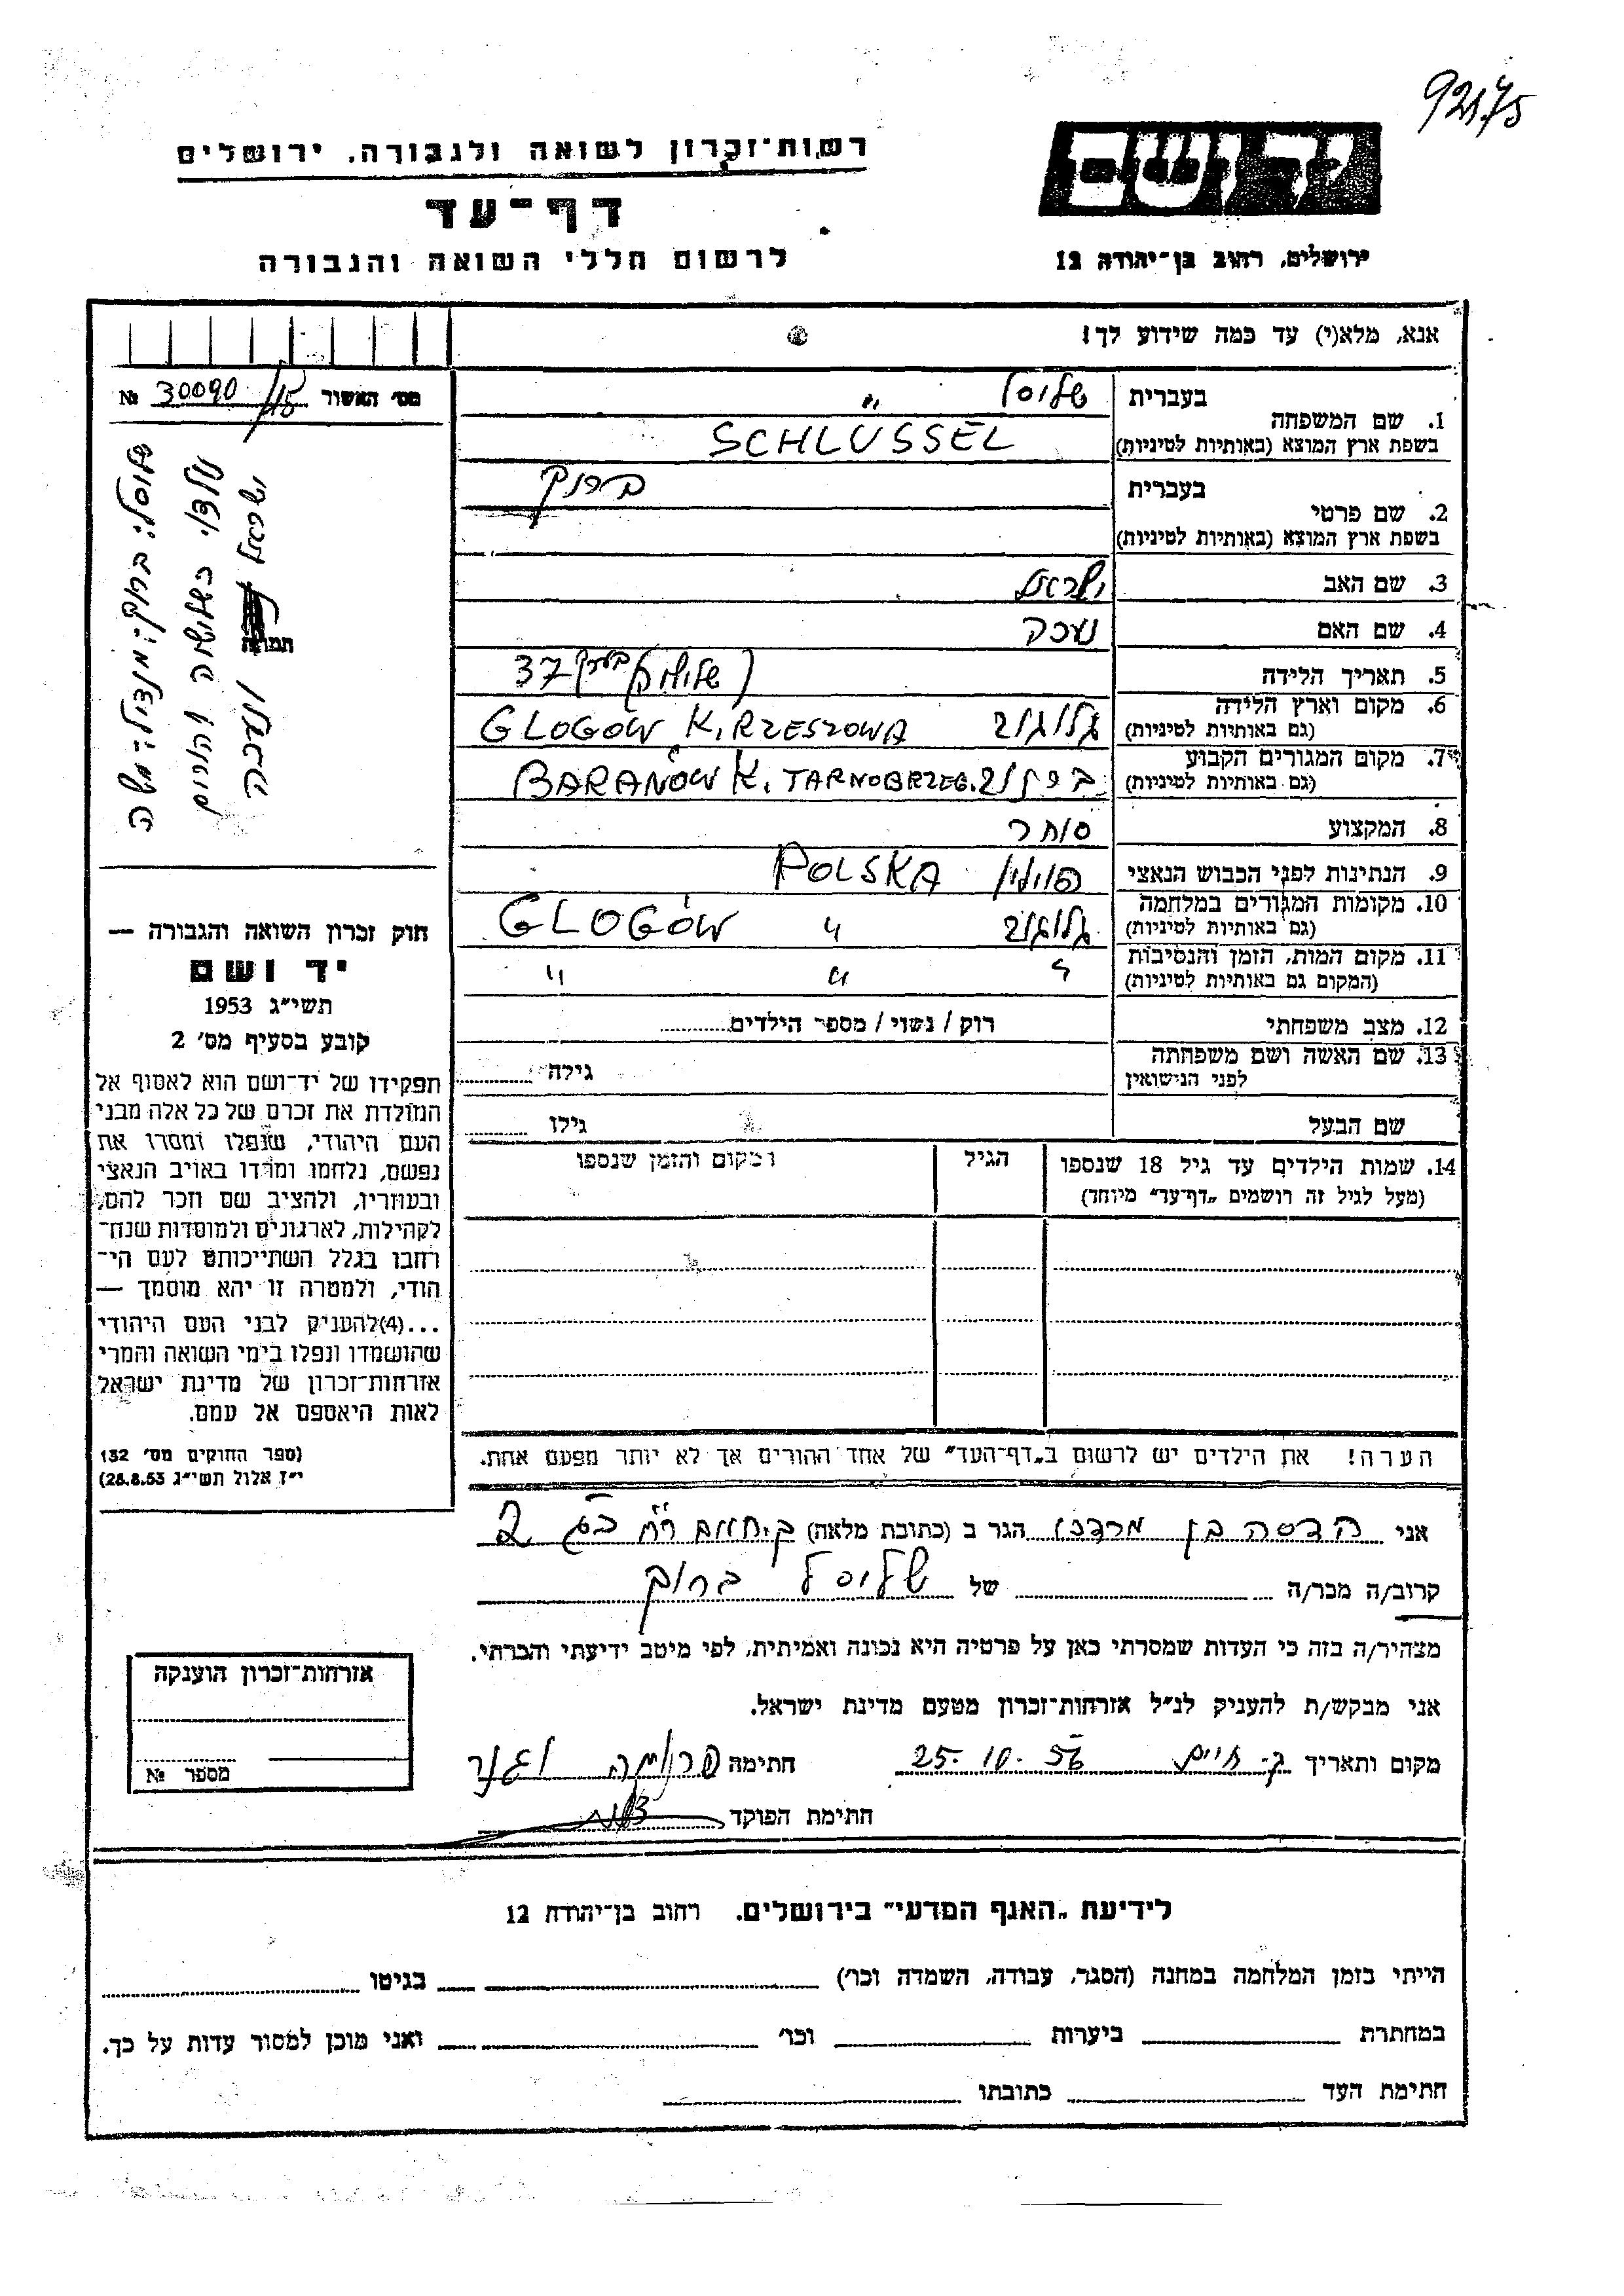 92175
רשות־זכרון לשואה ולגבורה, ירושלים
יד ושם
דף־עד
ירושלים, רחוב בן־יהודה 12
לרשום חללי השואה והגבורה
אנא, מלא(י) עד כמה שידוע לך!
מס' האשור № 30090/15
1. שם המשפחה
בעברית שליסל
בשפת ארץ המוצא (באותיות לטיניות) SCHLÜSSEL
2. שם פרטי
בעברית ברוך
בשפת ארץ המוצא (באותיות לטיניות)
3. שם האב ישראל
4. שם האם
5. תאריך הלידה 37
6. מקום וארץ הלידה
(גם באותיות לטיניות) גלוגוב GLOGÓW K. RZESZOWA
7. מקום המגורים הקבוע
(גם באותיות לטיניות) BARANÓW K. TARNOBRZEG.
8. המקצוע סוחר
9. הנתינות לפני הכבוש הנאצי פולין POLSKA
10. מקומות המגורים במלחמה
(גם באותיות לטיניות) גלוגוב " GLOGÓW
11. מקום המות, הזמן והנסיבות
(המקום גם באותיות לטיניות) " " "
12. מצב משפחתי רוק / נשוי / מספר הילדים
13. שם האשה ושם משפחתה
לפני הנישואין גילה
שם הבעל גילו
14. שמות הילדים עד גיל 18 שנספו
(מעל לגיל זה רושמים „דף־עד” מיוחד)
הגיל
מקום והזמן שנספו
הערה! את הילדים יש לרשום ב„דף־העד” של אחד ההורים אך לא יותר מפעם אחת.
תמונה
חוק זכרון השואה והגבורה —
יד ושם
תשי״ג 1953
קובע בסעיף מס' 2
תפקידו של יד־ושם הוא לאסוף אל
המולדת את זכרם של כל אלה מבני
העם היהודי, שנפלו ומסרו את
נפשם, נלחמו ומרדו באויב הנאצי
ובעוזריו, ולהציב שם וזכר להם,
לקהילות, לארגונים ולמוסדות שנח־
רבו בגלל השתייכותם לעם הי־
הודי, ולמטרה זו יהא מוסמך —
...(4)להעניק לבני העם היהודי
שהושמדו ונפלו בימי השואה והמרי
אזרחות־זכרון של מדינת ישראל
לאות היאספם אל עמם.
(ספר החוקים מס' 132
י״ז אלול תשי״ג 28.8.53)
אני הדסה בן מרדכי הגר ב (כתובת מלאה)
קרוב/ה מכר/ה של שליסל ברוך
מצהיר/ה בזה כי העדות שמסרתי כאן על פרטיה היא נכונה ואמיתית, לפי מיטב ידיעתי והכרתי.
אני מבקש/ת להעניק לנ״ל אזרחות־זכרון מטעם מדינת ישראל.
מקום ותאריך ק. חיים 25.10.56 חתימה
חתימת הפוקד
אזרחות־זכרון הוענקה
מספר №
לידיעת „האגף המדעי” בירושלים, רחוב בן־יהודה 12
הייתי בזמן המלחמה במחנה (הסגר, עבודה, השמדה וכו') בגיטו
במחתרת ביערות וכו' ואני מוכן למסור עדות על כך.
חתימת העד כתובתו